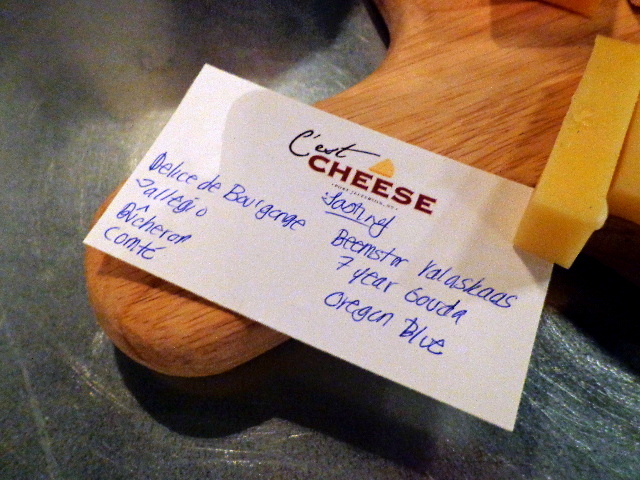 C'est
CHEESE
PORT JEFFERSON, NY
Tasting
Delice de Bourgogne
Tallegio
Bûcheron
Comté
Beemster Vlaskaas
7 year Gouda
Oregon Blue